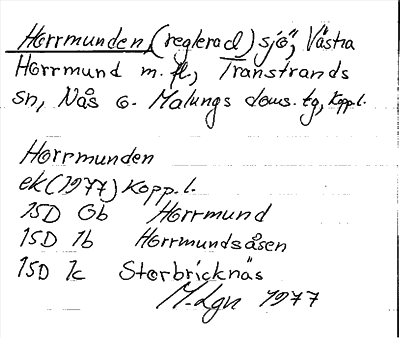 Horrmunden, (reglerad) sjö, Västra
Horrmund m.fl., Transtrands
sn, Nås o. Malungs doms. tg, Kopp.l.
Horrmunden
ek (1977) Kopp.l.
15D 0b Horrmund
15D 1b Horrmundsåsen
15D 1c Storbricknäs
M.Lgn 1977